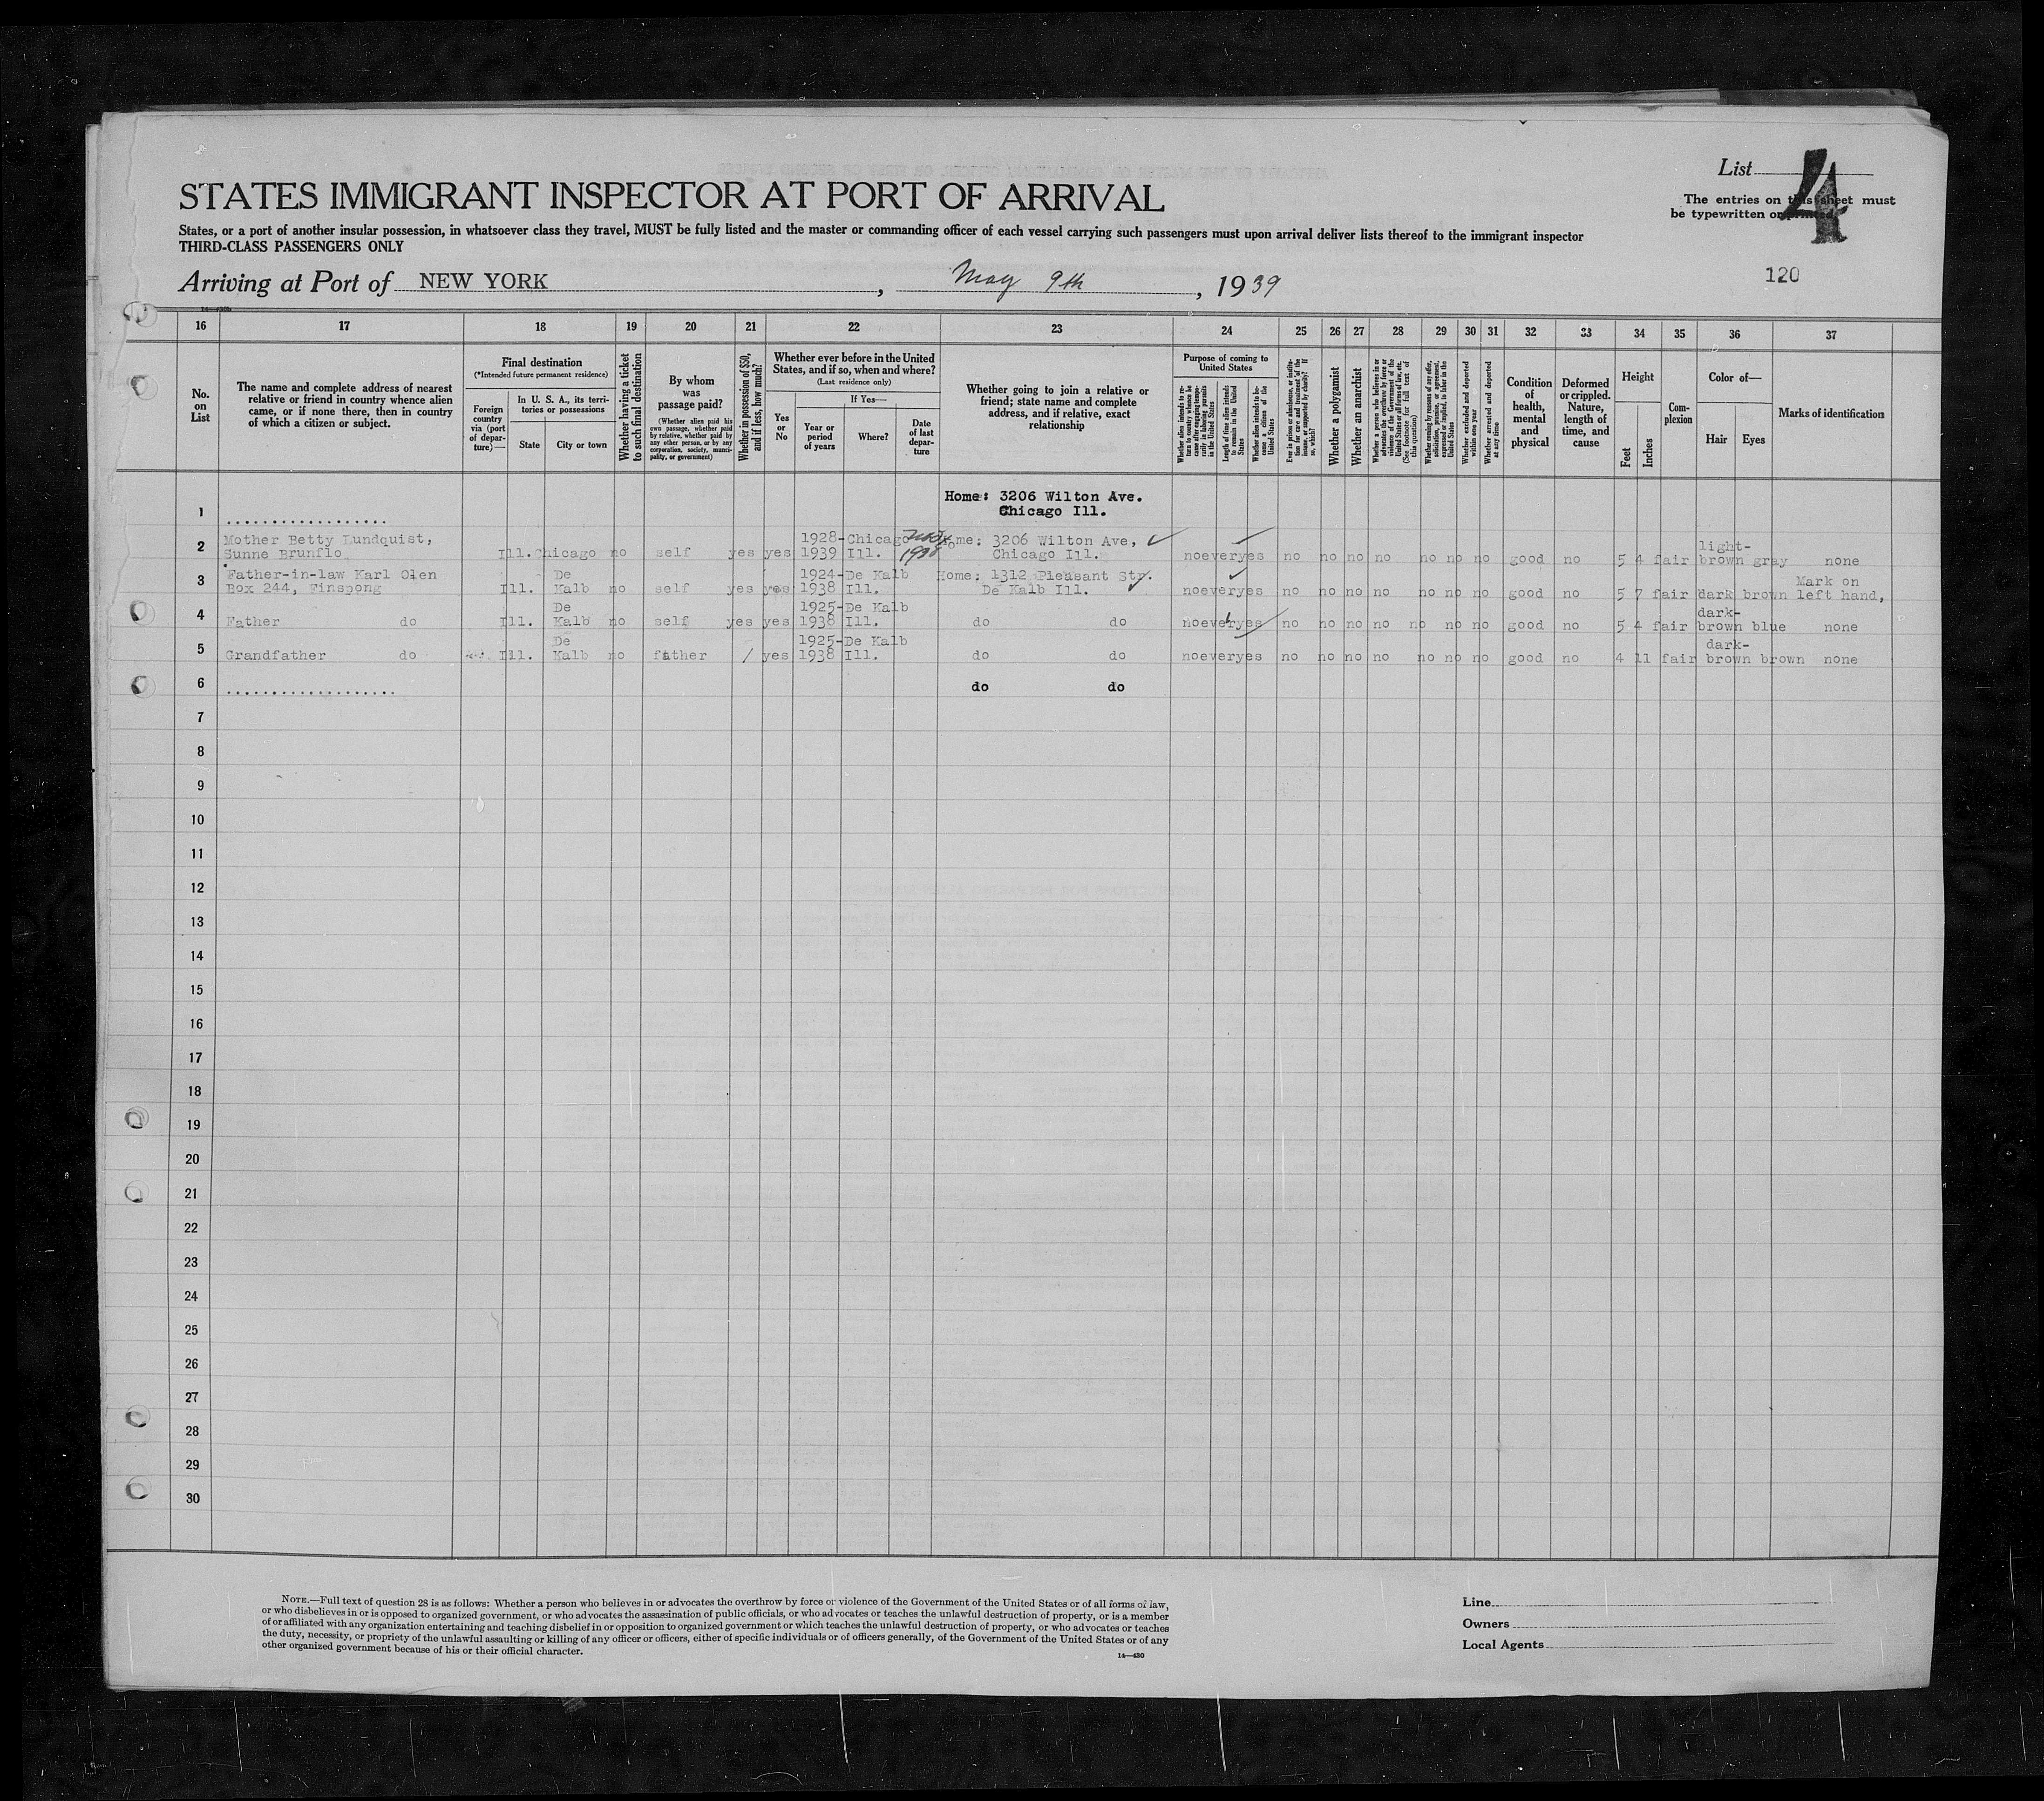 List 4
The entries on this sheet must
be typewritten or printed.
STATES IMMIGRANT INSPECTOR AT PORT OF ARRIVAL
States, or a port of another insular possession, in whatsoever class they travel, MUST be fully listed and the master or commanding officer of each vessel carrying such passengers must upon arrival deliver lists thereof to the immigrant inspector
THIRD-CLASS PASSENGERS ONLY
Arriving at Port of NEW YORK, May 9th, 1939
120
16 17 18 19 20 21 22 23 24 25 26 27 28 29 30 31 32 33 34 35 36 37
No. on List
The name and complete address of nearest
relative or friend in country whence alien
came, or if none there, then in country
of which a citizen or subject.
Final destination
(*Intended future permanent residence)
Foreign country via (port of departure)—
In U. S. A., its territories or possessions
State
City or town
Whether having a ticket to such final destination
By whom was passage paid?
(Whether alien paid his own passage, whether paid by relative, whether paid by any other person, or by any corporation, society, municipality, or government)
Whether in possession of $50, and if less, how much?
Whether ever before in the United
States, and if so, when and where?
(Last residence only)
Yes or No
If Yes—
Year or period of years
Where?
Date of last departure
Whether going to join a relative or
friend; state name and complete
address, and if relative, exact
relationship
Purpose of coming to United States
Whether alien intends to return to country whence he came after engaging temporarily in laboring pursuits in the United States
Length of time alien intends to remain in the United States
Whether alien intends to become a citizen of the United States
Ever in prison or almshouse, or institution for care and treatment of the insane, or supported by charity? If so, which?
Whether a polygamist
Whether an anarchist
Whether a person who believes in or advocates the overthrow by force or violence of the Government of the United States or all forms of law, etc. (See footnote for full text of this question)
Whether coming by reasons of any offer, solicitation, promise, or agreement, expressed or implied, to labor in the United States
Whether excluded and deported within one year
Whether arrested and deported at any time
Condition of health, mental and physical
Deformed or crippled. Nature, length of time, and cause
Height
Feet
Inches
Complexion
Color of—
Hair
Eyes
Marks of identification
Home: 3206 Wilton Ave.
1 Chicago Ill.
Mother Betty Lundquist, 1928- Chicago Home: 3206 Wilton Ave, light-
2 Sunne Brunflo Ill. Chicago no self yes yes 1939 Ill. 1938 Chicago Ill. no ever yes no no no no no no no good no 5 4 fair brown gray none
Father-in-law Karl Olen De 1924- De Kalb Home: 1312 Pleasant Str. Mark on
3 Box 244, Finspong Ill. Kalb no self yes yes 1938 Ill. De Kalb Ill. no ever yes no no no no no no no good no 5 7 fair dark brown left hand,
De 1925- De Kalb dark-
4 Father do Ill. Kalb no self yes yes 1938 Ill. do do no ever yes no no no no no no no good no 5 4 fair brown blue none
De 1925- De Kalb dark-
5 Grandfather do Ill. Kalb no father / yes 1938 Ill. do do no ever yes no no no no no no no good no 4 11 fair brown brown none
6 do do
7
8
9
10
11
12
13
14
15
16
17
18
19
20
21
22
23
24
25
26
27
28
29
30
NOTE.—Full text of question 28 is as follows: Whether a person who believes in or advocates the overthrow by force or violence of the Government of the United States or of all forms of law,
or who disbelieves in or is opposed to organized government, or who advocates the assassination of public officials, or who advocates or teaches the unlawful destruction of property, or is a member
of or affiliated with any organization entertaining and teaching disbelief in or opposition to organized government or which teaches the unlawful destruction of property, or who advocates or teaches
the duty, necessity, or propriety of the unlawful assaulting or killing of any officer or officers, either of specific individuals or of officers generally, of the Government of the United States or of any
other organized government because of his or their official character.
14—430
Line
Owners
Local Agents